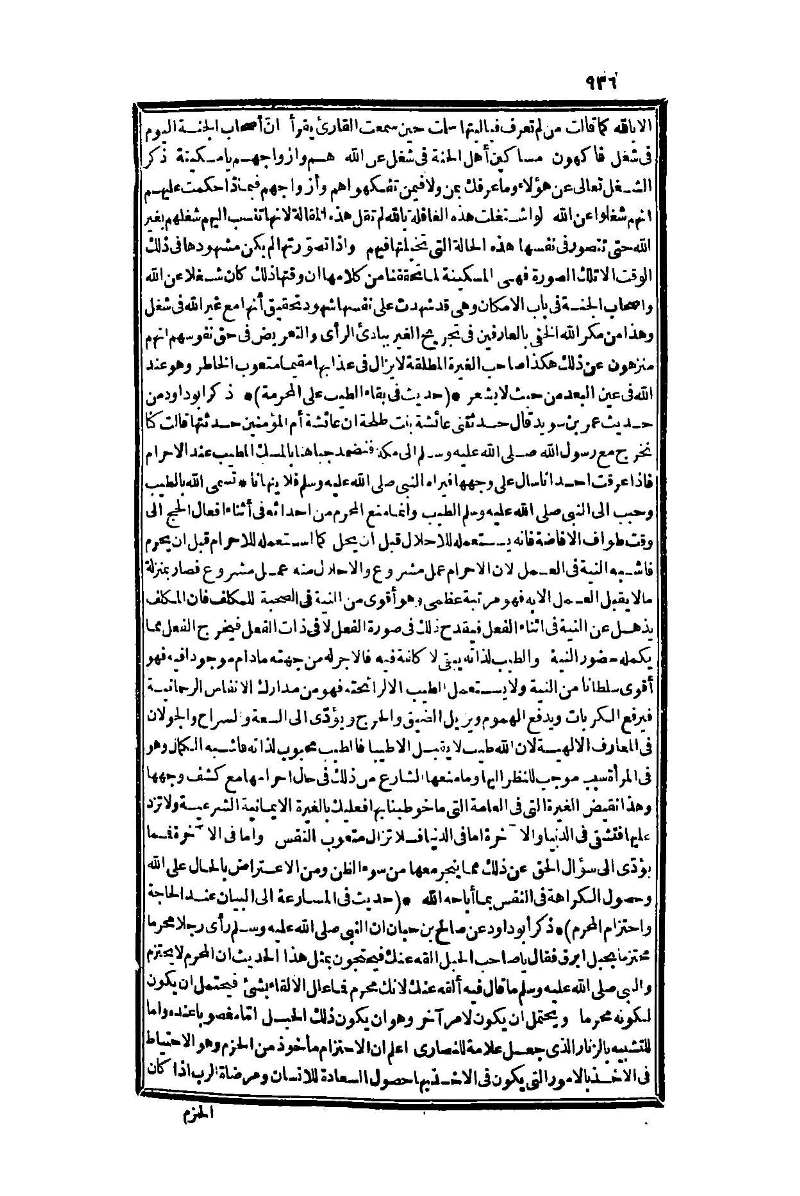 ٩٣٦
الا بالله كما قالت من لم تعرف فياليتها سلمت حين سمعت القارئ يقرأ ان أصحاب الجنة اليوم
فى شغل فاكهون مساكين أهل الجنة فى شغل عن الله هم وازواجهم يا مسكينة ذكر
الشغل تعالى عن هؤلاء وما عرفك بمن ولا فيمن تفكهوا هم وأزواجهم فبماذا حكمت عليهم
انهم شغلوا عن الله لو اشتغلت هذه القائلة بالله لم تقل هذه المقالة لانها تنسب اليهم شغلهم بغير
الله حتى تتصور فى نفسها هذه الحالة التى تخيلتها فيهم واذا تصورتها لم يكن مشهودها فى ذلك
الوقت الا تلك الصورة فهى المسكينة لما تحققنا من كلامها ان وقتها ذلك كان شغلا عن الله
واصحاب الجنة فى باب الامكان وهى قد شهدت على نفسها شهود تحقيق أنها مع غير الله فى شغل
وهذا من مكر الله الخفى بالعارفين فى تجريح الغير ببادئ الرأى والتعريض فى حق نفوسهم انهم
منزهون عن ذلك هكذا صاحب الغيرة المطلقة لا يزال فى عذابها مقيما متعوب الخاطر وهو عند
الله فى عين البعد من حيث لا يشعر * (حديث فى بقاء الطيب على المحرمة) * ذكر ابو داود من
حديث عمر بن سويد قال حدثتنى عائشة بنت طلحة ان عائشة أم المؤمنين حدثتها قالت كنا
نخرج مع رسول الله صلى الله عليه وسلم الى مكة فنضمد جباهنا بالمسك المطيب عند الاحرام
فاذا عرقت احدانا سال على وجهها فيراه النبى صلى الله عليه وسلم فلا ينهانا * تسمى الله بالطيب
وحبب الى النبى صلى الله عليه وسلم الطيب وانما منع المحرم من احداثه فى أثناء افعال الحج الى
وقت طواف الافاضة فانه يستعمله للاحلال قبل أن يحل كما استعمله للاحرام قبل ان يحرم
فاشبه النية فى العمل لان الاحرام عمل مشروع والاحلال منه عمل مشروع فصار بمنزلة
ما لا يقبل العمل الا به فهو مرتبة عظمى وهو أقوى من النية فى الصحبة للمكلف فان المكلف
يذهل عن النية فى اثناء الفعل فيقدح ذلك فى صورة الفعل لا فى ذات الفعل فيخرج الفعل مما
يكمله حضور النية والطيب لذاته يبقى لا كانة فيه فالاجر له من جهته مادام موجودا فيه فهو
أقوى سلطانا من النية ولا يستعمل الطيب الا لرائحته فهو من مدارك الانفاس الرحمانية
فيرفع الكربات ويدفع الهموم ويزيل الضيق والحرج ويؤدى الى السعة والسراح والجولان
فى المعارف الالهية لان الله طيب لا يقبل الا طيبا فالطيب محبوب لذاته فاشبه الكمال وهو
فى المرأة سبب موجب للنظر اليها وما منعها الشارع من ذلك فى حال احرامها مع كشف وجهها
وهذا نقيض الغيرة التى فى العامة التى ما خوطبنا بها فعليك بالغيرة الايمانية الشرعية ولا تزد
عليها فتشقى فى الدنيا والآخرة اما فى الدنيا فلا تزال متعوب النفس واما فى الآخرة فما
يؤدى الى سؤال الحق عن ذلك مما ينجر معها من سوء الظن ومن الاعتراض بالحال على الله
وحصول الكراهة فى النفس بما أباحه الله * (حديث فى المسارعة الى البيان عند الحاجة
واحتزام المحرم) * ذكر أبو داود عن صالح بن حيان ان النبى صلى الله عليه وسلم رأى رجلا محرما
محتزما بحبل ابرق فقال يا صاحب الحبل القه عنك فيحتجون بمثل هذا الحديث ان المحرم لا يحتزم
والنبى صلى الله عليه وسلم ما قال فيه ألقه عنك لانك محرم فما علل الالقاء بشئ فيحتمل ان يكون
لكونه محرما ويحتمل ان يكون لامر آخر وهو ان يكون ذلك الحبل اما مغصوبا عنده واما
للتشبيه بالزنار الذى جعل علامة للنصارى اعلم ان الاحتزام مأخوذ من الحزم وهو الاحتياط
فى الاخذ بالامور التى يكون فى الاخذ بها حصول السعادة للانسان ومرضاة الرب اذا كان
الحزم